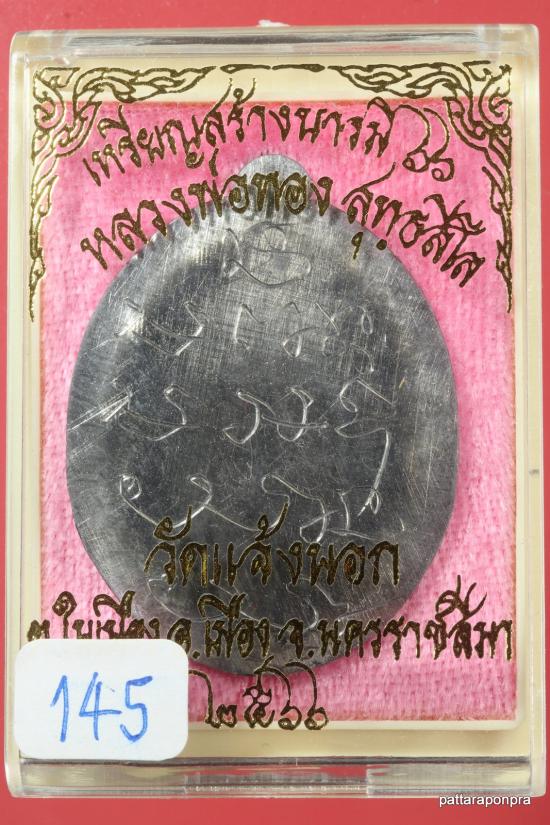 เหรียญสร้างบารมี ๖๖
หลวงพ่อทอง สุทธสีโล
วัดแจ้งนอก
ต.ในเมือง อ.เมือง จ.นครราชสีมา
๒๕๖๖
145
pattaraponpra